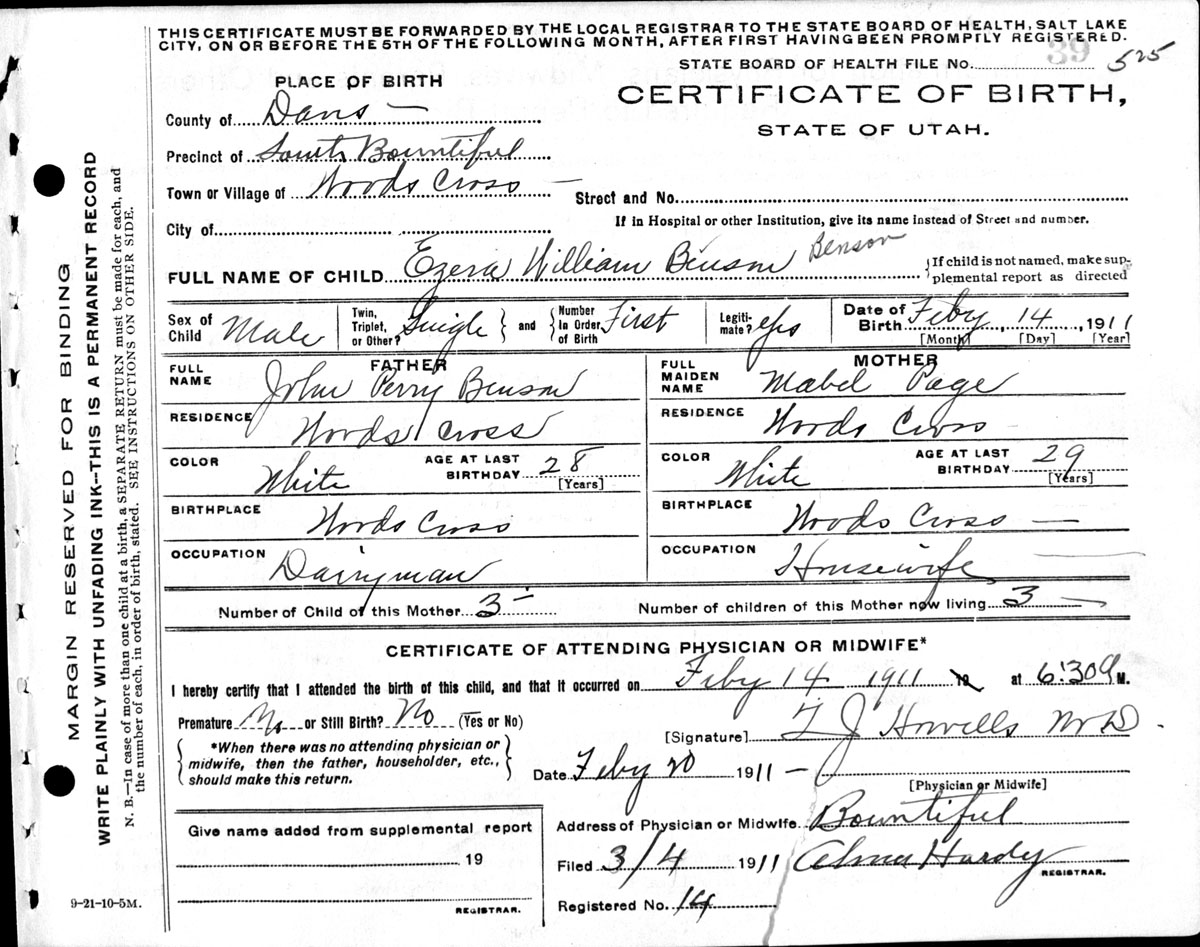 THIS CERTIFICATE MUST BE FORWARDED BY THE LOCAL REGISTRAR TO THE STATE BOARD OF HEALTH, SALT LAKE
CITY, ON OR BEFORE THE 5TH OF THE FOLLOWING MONTH, AFTER FIRST HAVING BEEN PROMPTLY REGISTERED.
39
STATE BOARD OF HEALTH FILE No. 525
PLACE OF BIRTH
CERTIFICATE OF BIRTH,
STATE OF UTAH.
County of Davis —
Precinct of South Bountiful
Town or Village of Woods Cross —
Street and No.
If in Hospital or other Institution, give its name instead of Street and number.
City of
FULL NAME OF CHILD Ezera William Benson Benson
{If child is not named, make sup-
plemental report as directed
Sex of Child Male
Twin, Triplet, or Other? Single } and { Number In Order of Birth First
Legiti-mate? yes
Date of Birth Feby 14, 1911
[Month] [Day] [Year]
FATHER
FULL NAME John Perry Benson
RESIDENCE Woods Cross
COLOR White AGE AT LAST BIRTHDAY 28 [Years]
BIRTHPLACE Woods Cross
OCCUPATION Dairyman
MOTHER
FULL MAIDEN NAME Mabel Page
RESIDENCE Woods Cross
COLOR White AGE AT LAST BIRTHDAY 29 [Years]
BIRTHPLACE Woods Cross —
OCCUPATION Housewife
Number of Child of this Mother 3 —
Number of children of this Mother now living 3 —
CERTIFICATE OF ATTENDING PHYSICIAN OR MIDWIFE*
I hereby certify that I attended the birth of this child, and that it occurred on Feby 14 1911 19 at 6:30 a M.
Premature No or Still Birth? No (Yes or No)
{*When there was no attending physician or
midwife, then the father, householder, etc.,
should make this return.}
[Signature] F J Howells M D.
Date Feby 20 1911 —
[Physician or Midwife]
Give name added from supplemental report
19
REGISTRAR.
Address of Physician or Midwife Bountiful
Filed 3/4 1911 Alma Hardy
REGISTRAR.
Registered No. 14
9-21-10-5M.
MARGIN RESERVED FOR BINDING
WRITE PLAINLY WITH UNFADING INK--THIS IS A PERMANENT RECORD
N. B.—In case of more than one child at a birth, a SEPARATE RETURN must be made for each, and
the number of each, in order of birth, stated. SEE INSTRUCTIONS ON OTHER SIDE.